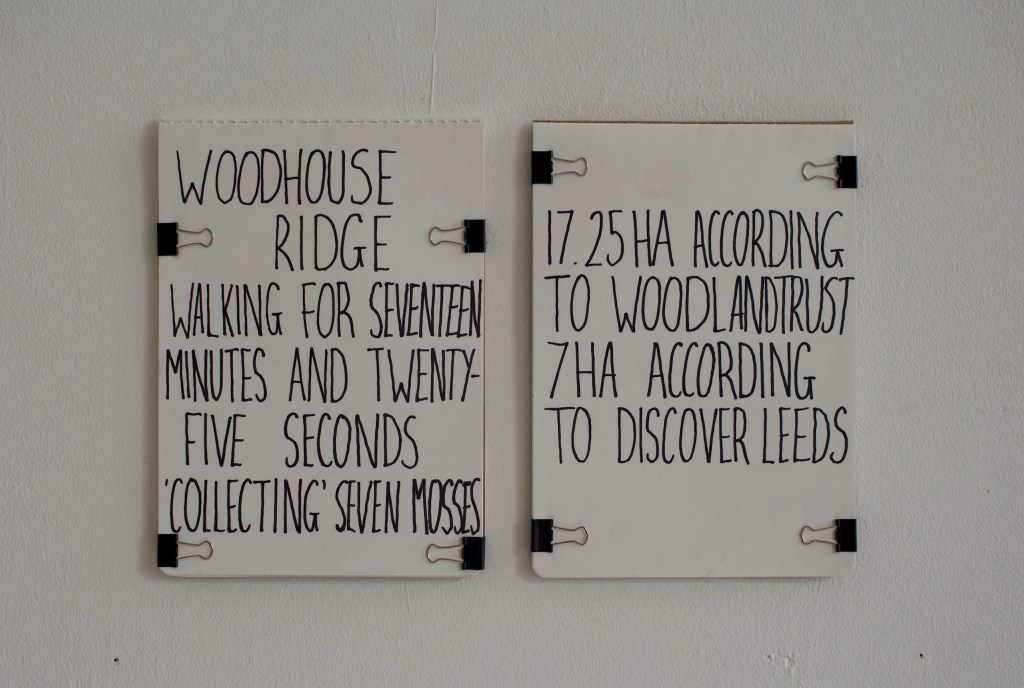 WOODHOUSE
RIDGE
WALKING FOR SEVENTEEN
MINUTES AND TWENTY-
FIVE SECONDS
'COLLECTING' SEVEN MOSSES
17.25HA ACCORDING
TO WOODLANDTRUST
7HA ACCORDING
TO DISCOVER LEEDS